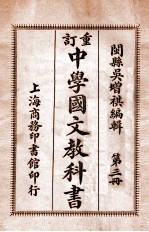 閩縣吳增祺編輯
第三冊
重訂
中學國文教科書
上海商務印書館印行